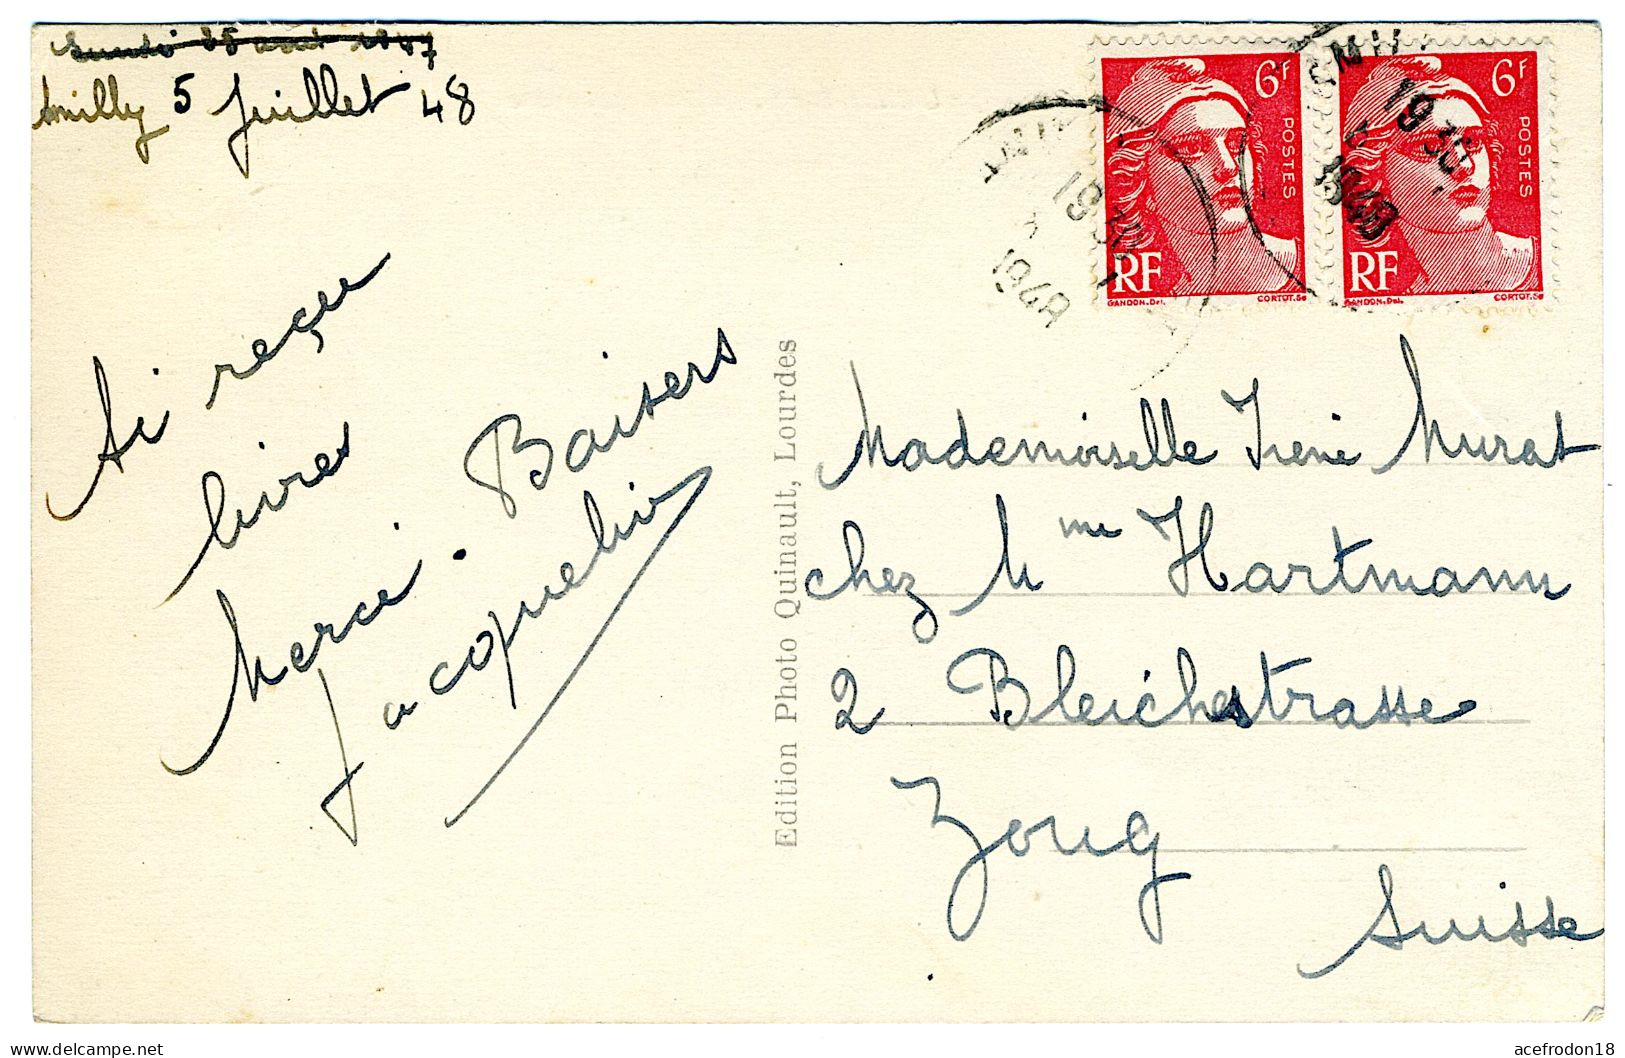 Lundi 25 août 1947
Amilly 5 Juillet 48
Ai reçu
livres
Merci. Baisers
Jacqueline
Edition Photo Quinault, Lourdes
6F
POSTES
RF
GANDON.Del.
CORTOT.Sc
6F
POSTES
RF
GANDON.Del.
CORTOT.Sc
19 30
1948
19 30
1948
Mademoiselle Irène Murat
chez Mme Hartmann
2 Bleichestrasse
Zoug
Suisse
delcampe.net
acefrodon18